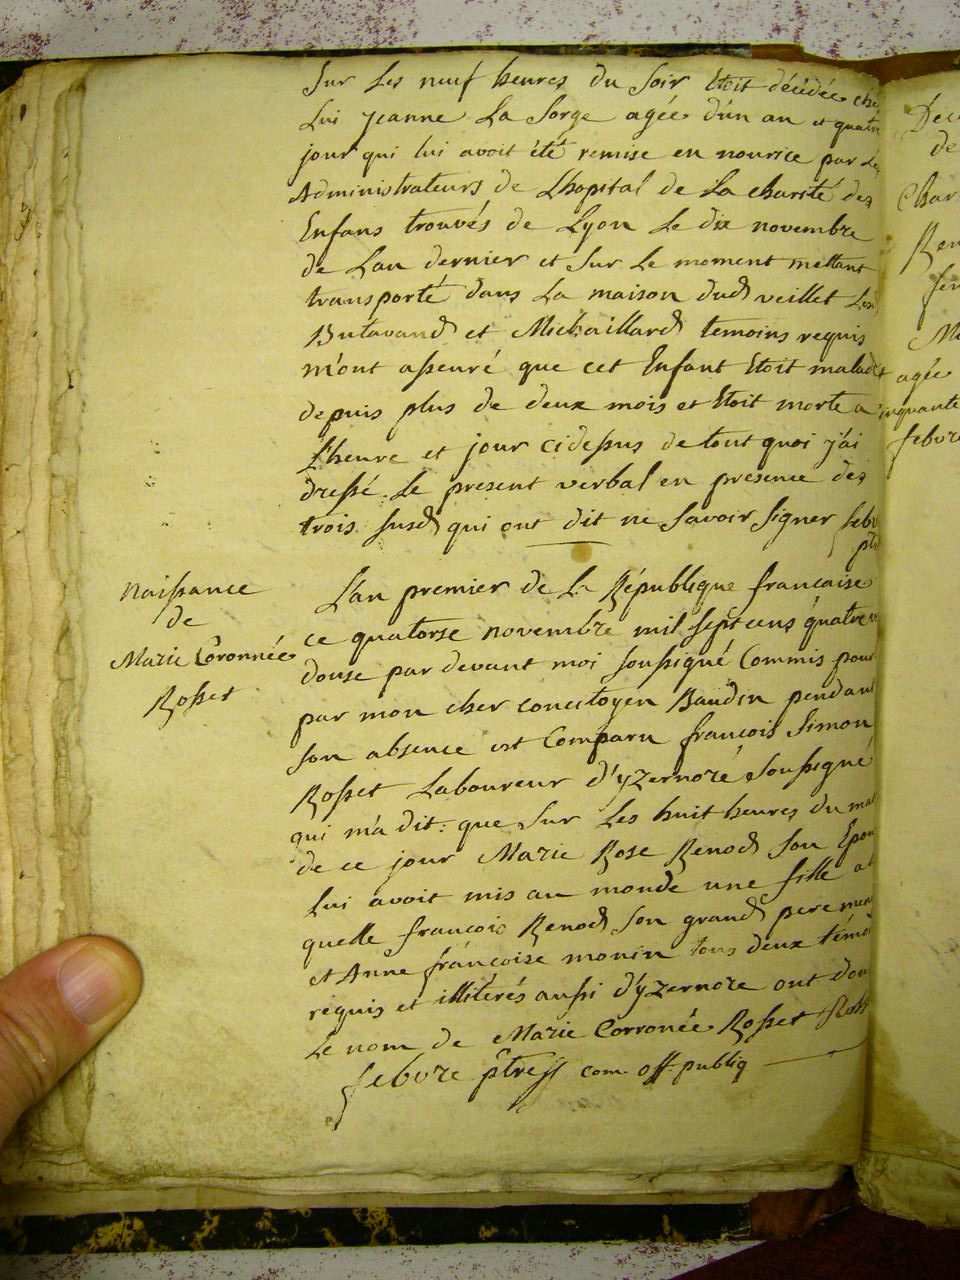 Sur les neuf heures du Soir Etoit décédée chez
Lui jeanne La Sorge agée d'un an et quatre
jour qui lui avoit été remise en nourice par les
Administrateurs de Lhopital de La charité des
Enfans trouvés de Lyon Le dix novembre
de Lan dernier et Sur Le moment mettant
transporté dans La maison dud veillet Les
Butavand et Michaillard temoins requis
m'ont asseuré que cet Enfant Etoit malade
depuis plus de deux mois et Etoit morte a
L'heure et jour cidessus de tout quoi j'ai
dressé Le present verbal en presence des
trois susd qui ont dit ne Savoir Signer febvre
ptre
naissance
de
Marie Coronnée
Rosset
L'an premier de La République francaise
ce quatorse novembre mil sept cens quatre v
douse par devant moi soussigné Commis pour
par mon cher concitoyen Baudin pendant
son absence est Comparu francois Simon
Rosset Laboureur d'yzernore soussigné
qui m'a dit: que Sur Les huit heures du mat
de ce jour Marie Rose Renod Son Epou
Lui avoit mis au monde une fille a
quelle francois Renod son grand pere
et Anne françoise monin tous deux témo
requis et illitérés aussi d'yzernore ont don
Le nom de Marie Corronée Rosset
febvre ptre com. off. publiq
Dec
de
Char
Ren
fem
M
agée
cinquante
febvre